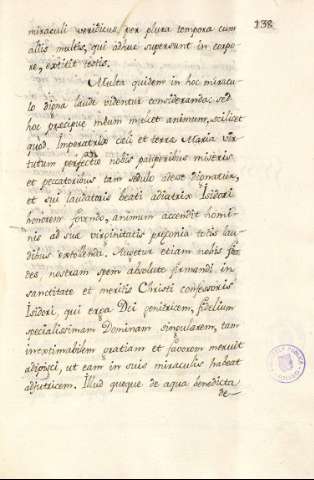 138
miraculi veridicus, per plura tempora cum
aliis multis, qui adhuc supersunt in corpo-
re, extitit testis.
Multa quidem in hoc miracu-
lo digna laude videntur consideranda: sed
hoc præcipue meum movet animum, scilicet
quod Imperatrix celi, et terræ Maria vir-
tutum perfectis nobis pauperibus miseris
et peccatoribus tam sedulo adesse dignatur,
et sui laudatoris beati adiutrix Isidori
honorem fovendo, animum accendit homi-
nis ad suæ virginitatis preconia totis lau-
dibus extollenda. Augetur etiam nobis fi-
des nostram spem absolute firmandi in
sanctitate et meritis Christi confessoris
Isidori, qui erga Dei genitricem, fidelium
specialissimam Dominam singularem, tam
inextimabilem gratiam et favorem meruit
adipisci, ut eam in suis miraculis habeat
adjutricem. Illud quoque de aqua benedicta
de-